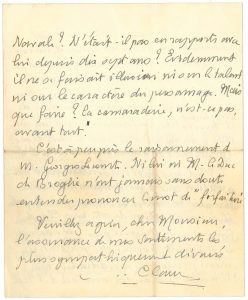 Navale ? N'était-il pas en rapports avec
lui depuis dix sept ans ? Evidemment
il ne se faisait illusion ni sur le talent
ni sur le caractère du personnage. Mais
que faire ? la camaraderie, n'est-ce pas,
avant tout.
C'est à peu près le raisonnement de
M. Georges Ni lui ni M. le Duc
de Broglie n'ont jamais sans doute
entendu prononcer le mot de "forfaiture
Veuillez agréer, cher Monsieur,
l'assurance de mes sentiments les
plus sympathiquement dévoués